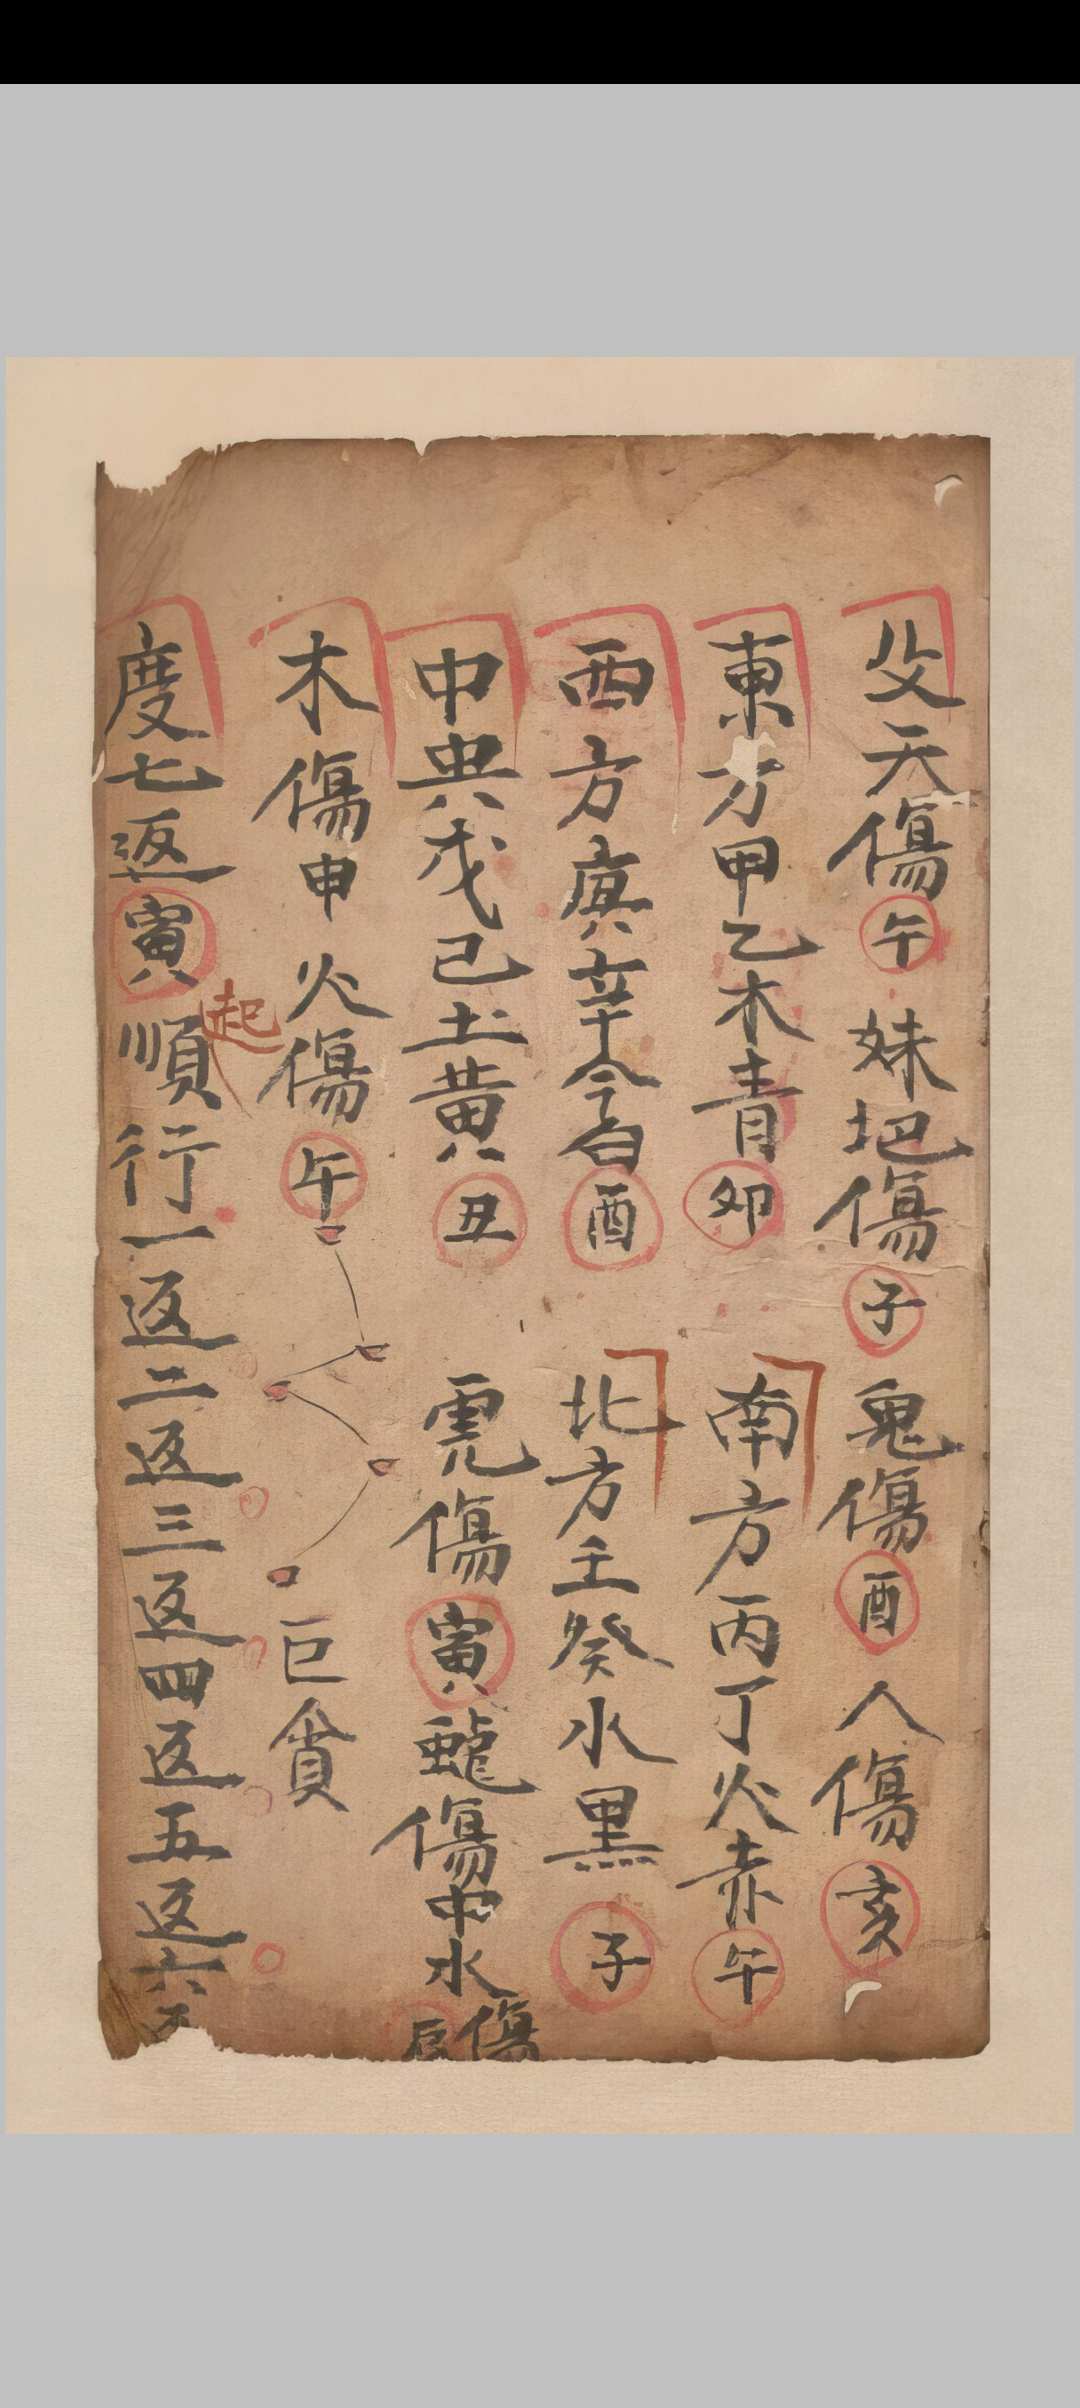 父天傷午 妹地傷子 鬼傷酉 人傷亥
東方甲乙木青卯 南方丙丁火赤午
西方庚辛金白酉 北方壬癸水黑子
中央戊己土黃丑 虎傷寅 傷中水傷辰
木傷申 火傷午 巨貪
度七返寅起順行一返二返三返四返五返六